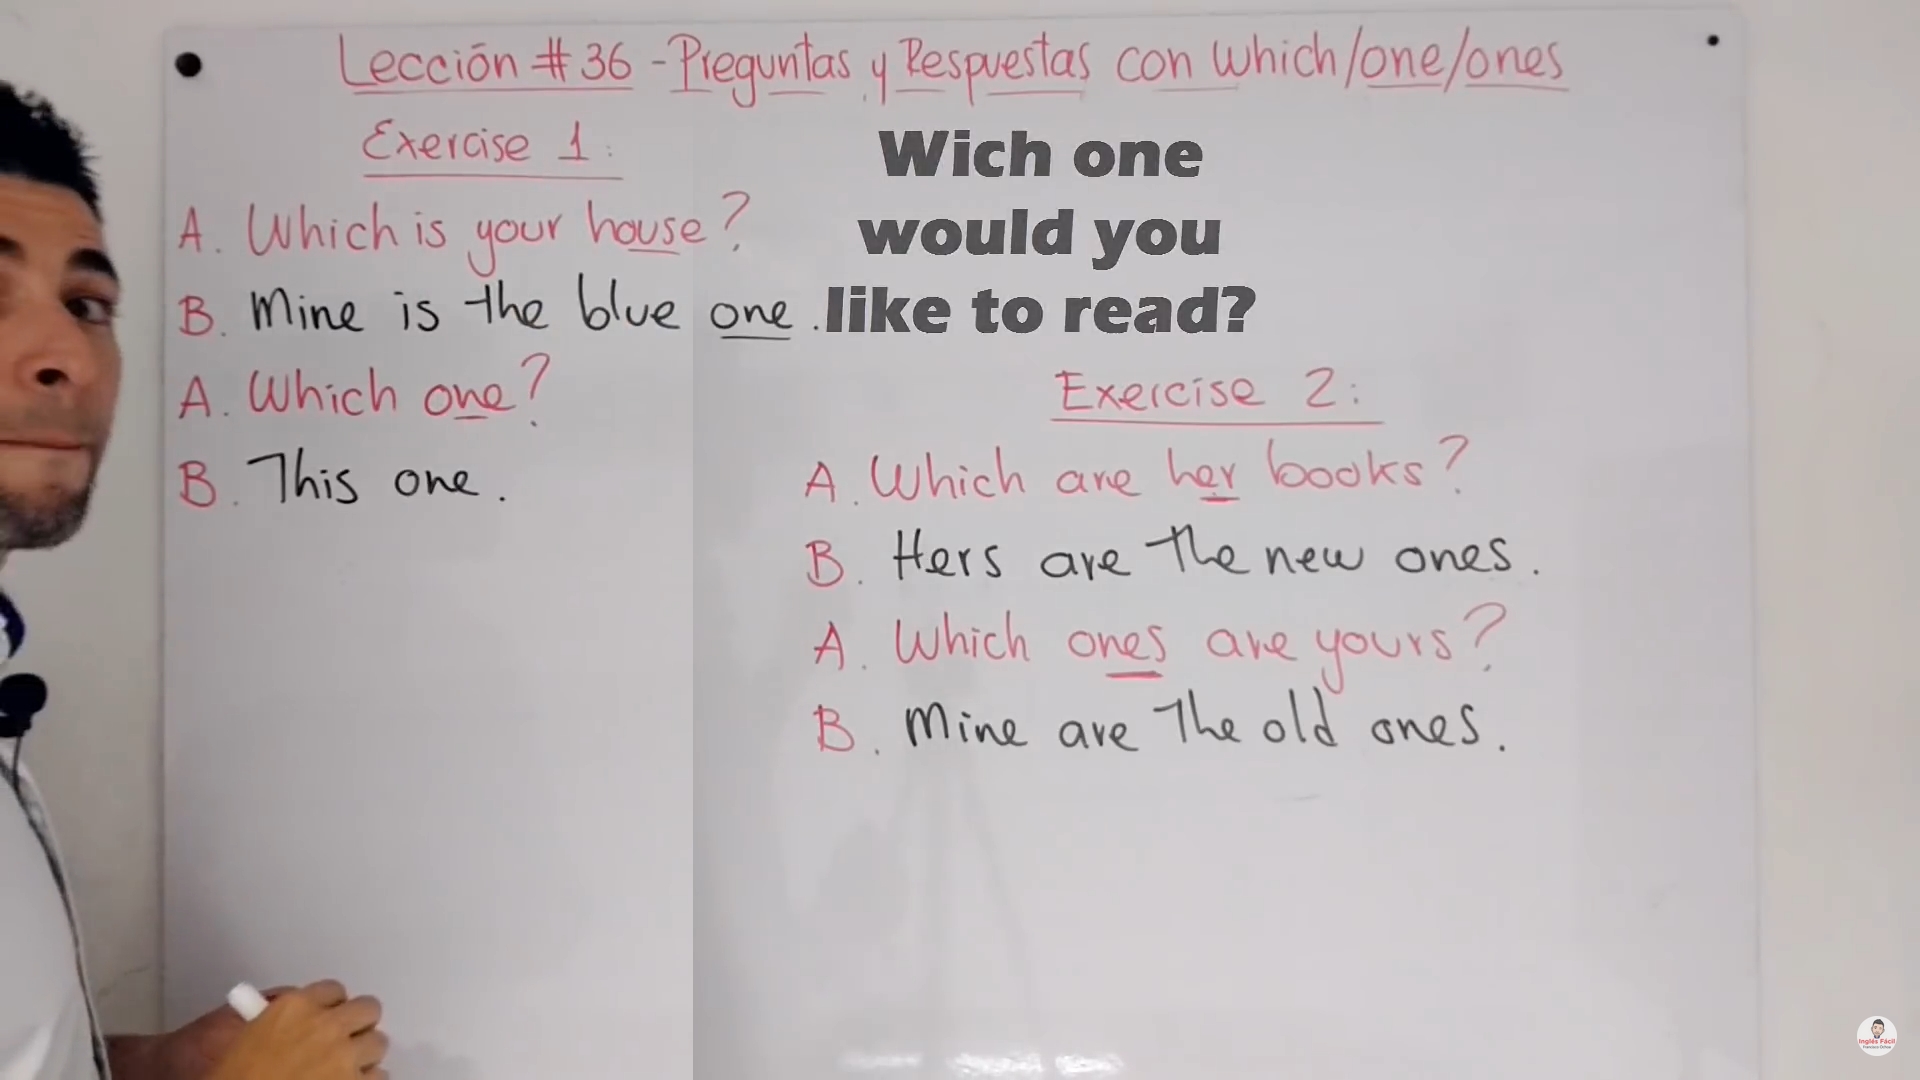 Lección # 36 - Preguntas y Respuestas con which/one/ones
Exercise 1:
A. Which is your house?
B. Mine is the blue one.
A. Which one?
B. This one.
Wich one
would you
like to read?
Exercise 2:
A. Which are her books?
B. Hers are the new ones.
A. Which ones are yours?
B. Mine are the old ones.
Inglés Fácil